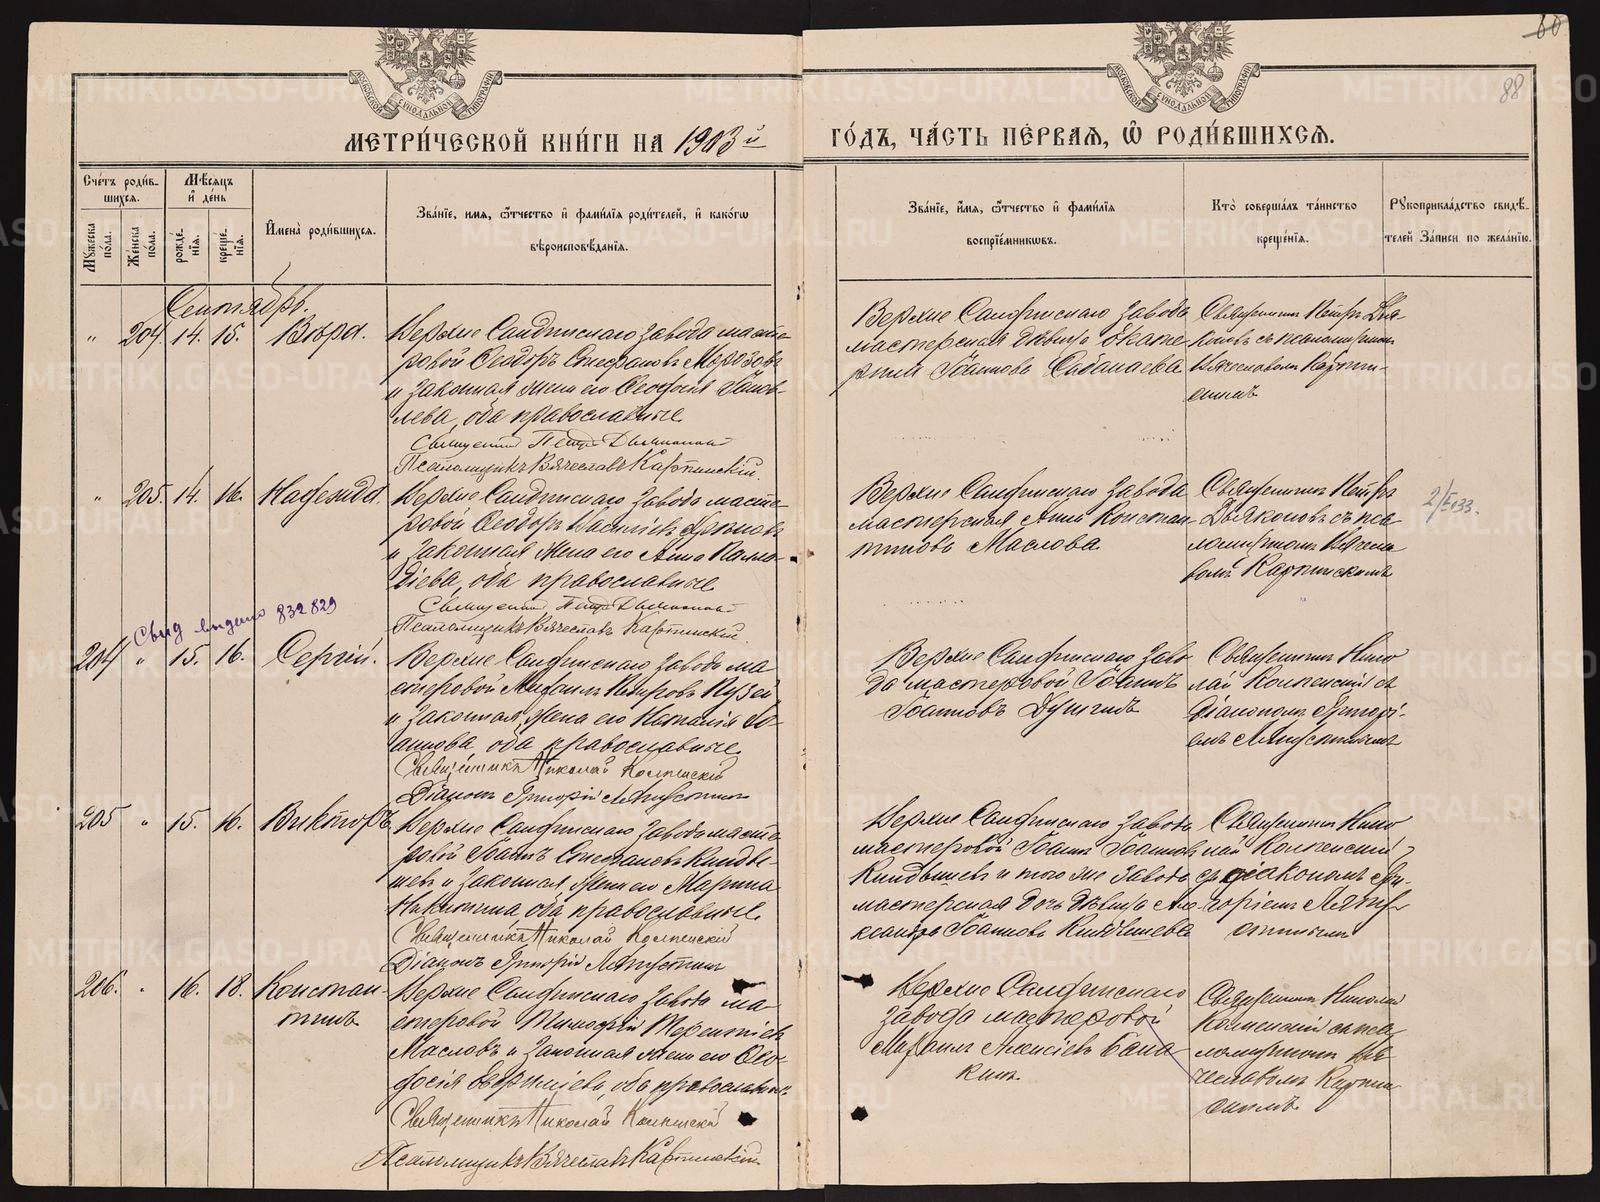 МЕТРИ́ЧЕСКОЙ КНИ́ГИ НА 1903й ГО́ДЪ, ЧА́СТЬ ПЕ́РВАЯ, Ѡ҆ РОДИ́ВШИХСЯ.
88
Сче́тъ роди́в-
шихся.
Мѣ́сяцъ
и҆ де́нь
Мꙋ́жеска
по́ла.
Же́нска
по́ла.
рожде́-
нїя.
креще́-
нїя.
И҆мена̀ роди́вшихся.
Зва́нїе, и́мя, ѻ҆́тчество и҆ фами́лїя роди́телей, и҆ како́гѡ
вѣроисповѣ́данїя.
Зва́нїе, и҆́мя, ѻ҆́тчество и҆ фами́лїя
воспрїе́мникѡвъ.
Кто̀ соверша́лъ та́инство
креще́нїя.
Рꙋкоприкла́дство свидѣ́-
телей За́писи по жела́нїю.
Сентябрь.
„ 204. 14. 15. Вѣра.
Верхне Салдинскаго завода масте-
ровой Ѳеодоръ Стефановъ Морозовъ
и законная жена его Ѳеодосія
лева, оба православные
Священникъ Петръ Дьяконовъ
Псаломщикъ Вячеславъ Карпинскій.
Верхне Салдинскаго завода
мастерская дѣвица Екате-
рина Іоаннова Сабанаева
Священникъ Петръ Дья-
коновъ съ псаломщикомъ
Вячеславомъ Карпин-
скимъ
„ 205. 14. 16. Надежда.
Верхне Салдинскаго завода масте-
ровой Ѳеодоръ Василіевъ
и законная жена его Анна Палла-
діева, оба православные
Священникъ Петръ Дьяконовъ
Псаломщикъ Вячеславъ Карпинскій.
Верхне Салдинскаго завода
мастерская Анна Констан-
тинова Маслова
Священникъ Петръ
Дьяконовъ съ пса-
ломщикомъ Вячесла-
вомъ Карпинскимъ
Свид выдано 832829
204 „ 15. 16. Сергій.
Верхне Салдинскаго завода ма-
стеровой Михаилъ Кузей
и законная жена его Наталія Іо-
аннова, оба православные
Священникъ Николай Колпенскій
Діаконъ Григорій Ляпустинъ
Верхне Салдинскаго заво-
да мастеровой Іоаннъ
Іоанновъ
Священникъ Нико-
лай Колпенскій съ
Діакономъ Григорі-
емъ Ляпустинымъ
205 „ 15. 16. Викторъ.
Верхне Салдинскаго завода масте-
ровой Іоаннъ Стефановъ Киндѣ-
шевъ и законная жена его Марина
Никитина оба православные
Священникъ Николай Колпенскій
Діаконъ Григорій Ляпустинъ
Верхне Салдинскаго завода
мастеровой Іоаннъ Іоанновъ
Киндѣшевъ и того же завода
мастерская дочь дѣвица Але-
ксандра Іоаннова Киндѣшева
Священникъ Нико-
лай Колпенскій
съ діакономъ Гри-
горіемъ Ляпу-
стинымъ
206. „ 16. 18. Констан-
тинъ
Верхне Салдинскаго завода ма-
стеровой Тимофей Терентіевъ
Масловъ и законная жена его Ѳео-
досія Евфиміева, оба православные.
Священникъ Николай Колпенскій
Псаломщикъ Вячеславъ Карпинскій
Верхне Салдинскаго
завода мастеровой
Михаилъ Алексіевъ
Священникъ Николай
Колпенскій съ пса-
ломщикомъ Вя-
чеславомъ Карпин-
скимъ
METRIKI.GASO-URAL.RU